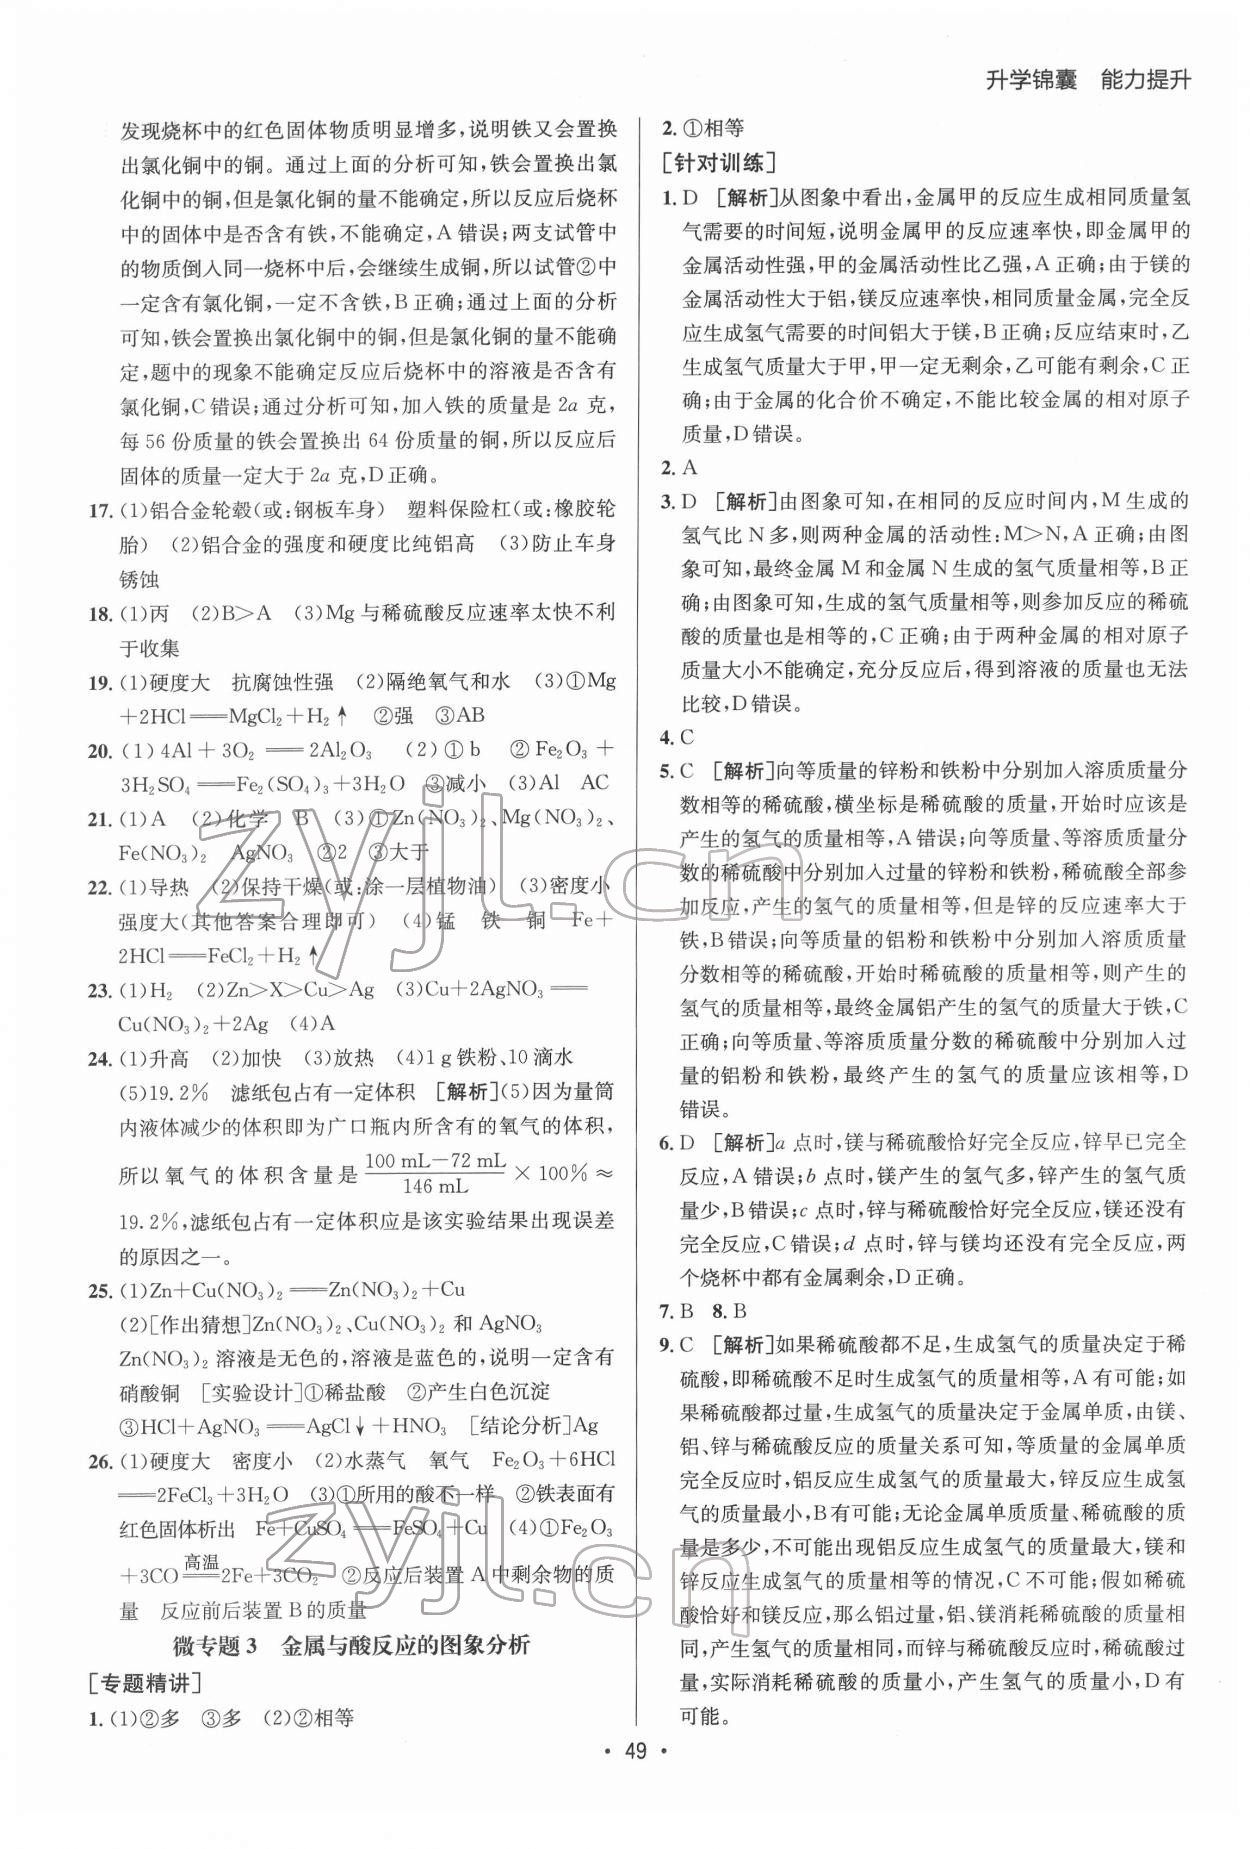 升学锦囊 能力提升
发现烧杯中的红色固体物质明显增多,说明铁又会置换
出氯化铜中的铜。通过上面的分析可知,铁会置换出氯
化铜中的铜,但是氯化铜的量不能确定,所以反应后烧杯
中的固体中是否含有铁,不能确定,A错误;两支试管中
的物质倒入同一烧杯中后,会继续生成铜,所以试管②中
一定含有氯化铜,一定不含铁,B正确;通过上面的分析
可知,铁会置换出氯化铜中的铜,但是氯化铜的量不能确
定,题中的现象不能确定反应后烧杯中的溶液是否含有
氯化铜,C错误;通过分析可知,加入铁的质量是2a克,
每56份质量的铁会置换出64份质量的铜,所以反应后
固体的质量一定大于2a克,D正确。
17.(1)铝合金轮毂(或:钢板车身) 塑料保险杠(或:橡胶轮
胎) (2)铝合金的强度和硬度比纯铝高 (3)防止车身
锈蚀
18.(1)丙 (2)B>A (3)Mg与稀硫酸反应速率太快不利
于收集
19.(1)硬度大 抗腐蚀性强 (2)隔绝氧气和水 (3)①Mg
+2HCl══MgCl₂+H₂↑ ②强 ③AB
20.(1)4Al+3O₂══2Al₂O₃ (2)①b ②Fe₂O₃+
3H₂SO₄══Fe₂(SO₄)₃+3H₂O ③减小 (3)Al AC
21.(1)A (2)化学 B (3)①Zn(NO₃)₂、Mg(NO₃)₂、
Fe(NO₃)₂ AgNO₃ ②2 ③大于
22.(1)导热 (2)保持干燥(或:涂一层植物油) (3)密度小
强度大(其他答案合理即可) (4)锰 铁 铜 Fe+
2HCl══FeCl₂+H₂↑
23.(1)H₂ (2)Zn>X>Cu>Ag (3)Cu+2AgNO₃══
Cu(NO₃)₂+2Ag (4)A
24.(1)升高 (2)加快 (3)放热 (4)1 g铁粉、10滴水
(5)19.2% 滤纸包占有一定体积 [解析](5)因为量筒
内液体减少的体积即为广口瓶内所含有的氧气的体积,
所以氧气的体积含量是(100 mL-72 mL)/146 mL×100%≈
19.2%,滤纸包占有一定体积应是该实验结果出现误差
的原因之一。
25.(1)Zn+Cu(NO₃)₂══Zn(NO₃)₂+Cu
(2)[作出猜想]Zn(NO₃)₂、Cu(NO₃)₂和AgNO₃
Zn(NO₃)₂溶液是无色的,溶液是蓝色的,说明一定含有
硝酸铜 [实验设计]①稀盐酸 ②产生白色沉淀
③HCl+AgNO₃══AgCl↓+HNO₃ [结论分析]Ag
26.(1)硬度大 密度小 (2)水蒸气 氧气 Fe₂O₃+6HCl
══2FeCl₃+3H₂O (3)①所用的酸不一样 ②铁表面有
红色固体析出 Fe+CuSO₄══FeSO₄+Cu (4)①Fe₂O₃
+3CO═高温═2Fe+3CO₂ ②反应后装置A中剩余物的质
量 反应前后装置B的质量
微专题3 金属与酸反应的图象分析
[专题精讲]
1.(1)②多 ③多 (2)②相等
2.①相等
[针对训练]
1.D [解析]从图象中看出,金属甲的反应生成相同质量氢
气需要的时间短,说明金属甲的反应速率快,即金属甲的
金属活动性强,甲的金属活动性比乙强,A正确;由于镁的
金属活动性大于铝,镁反应速率快,相同质量金属,完全反
应生成氢气需要的时间铝大于镁,B正确;反应结束时,乙
生成氢气质量大于甲,甲一定无剩余,乙可能有剩余,C正
确;由于金属的化合价不确定,不能比较金属的相对原子
质量,D错误。
2.A
3.D [解析]由图象可知,在相同的反应时间内,M生成的
氢气比N多,则两种金属的活动性:M>N,A正确;由图
象可知,最终金属M和金属N生成的氢气质量相等,B正
确;由图象可知,生成的氢气质量相等,则参加反应的稀硫
酸的质量也是相等的,C正确;由于两种金属的相对原子
质量大小不能确定,充分反应后,得到溶液的质量也无法
比较,D错误。
4.C
5.C [解析]向等质量的锌粉和铁粉中分别加入溶质质量分
数相等的稀硫酸,横坐标是稀硫酸的质量,开始时应该是
产生的氢气的质量相等,A错误;向等质量、等溶质质量分
数的稀硫酸中分别加入过量的锌粉和铁粉,稀硫酸全部参
加反应,产生的氢气的质量相等,但是锌的反应速率大于
铁,B错误;向等质量的铝粉和铁粉中分别加入溶质质量
分数相等的稀硫酸,开始时稀硫酸的质量相等,则产生的
氢气的质量相等,最终金属铝产生的氢气的质量大于铁,C
正确;向等质量、等溶质质量分数的稀硫酸中分别加入过
量的铝粉和铁粉,最终产生的氢气的质量应该相等,D
错误。
6.D [解析]a点时,镁与稀硫酸恰好完全反应,锌早已完全
反应,A错误;b点时,镁产生的氢气多,锌产生的氢气质
量少,B错误;c点时,锌与稀硫酸恰好完全反应,镁还没有
完全反应,C错误;d点时,锌与镁均还没有完全反应,两
个烧杯中都有金属剩余,D正确。
7.B 8.B
9.C [解析]如果稀硫酸都不足,生成氢气的质量决定于稀
硫酸,即稀硫酸不足时生成氢气的质量相等,A有可能;如
果稀硫酸都过量,生成氢气的质量决定于金属单质,由镁、
铝、锌与稀硫酸反应的质量关系可知,等质量的金属单质
完全反应时,铝反应生成氢气的质量最大,锌反应生成氢
气的质量最小,B有可能;无论金属单质质量、稀硫酸的质
量是多少,不可能出现铝反应生成氢气的质量最大,镁和
锌反应生成氢气的质量相等的情况,C不可能;假如稀硫
酸恰好和镁反应,那么铝过量,铝、镁消耗稀硫酸的质量相
同,产生氢气的质量相同,而锌与稀硫酸反应时,稀硫酸过
量,实际消耗稀硫酸的质量小,产生氢气的质量小,D有
可能。
·49·
zyjl.cn
zyjl.cn